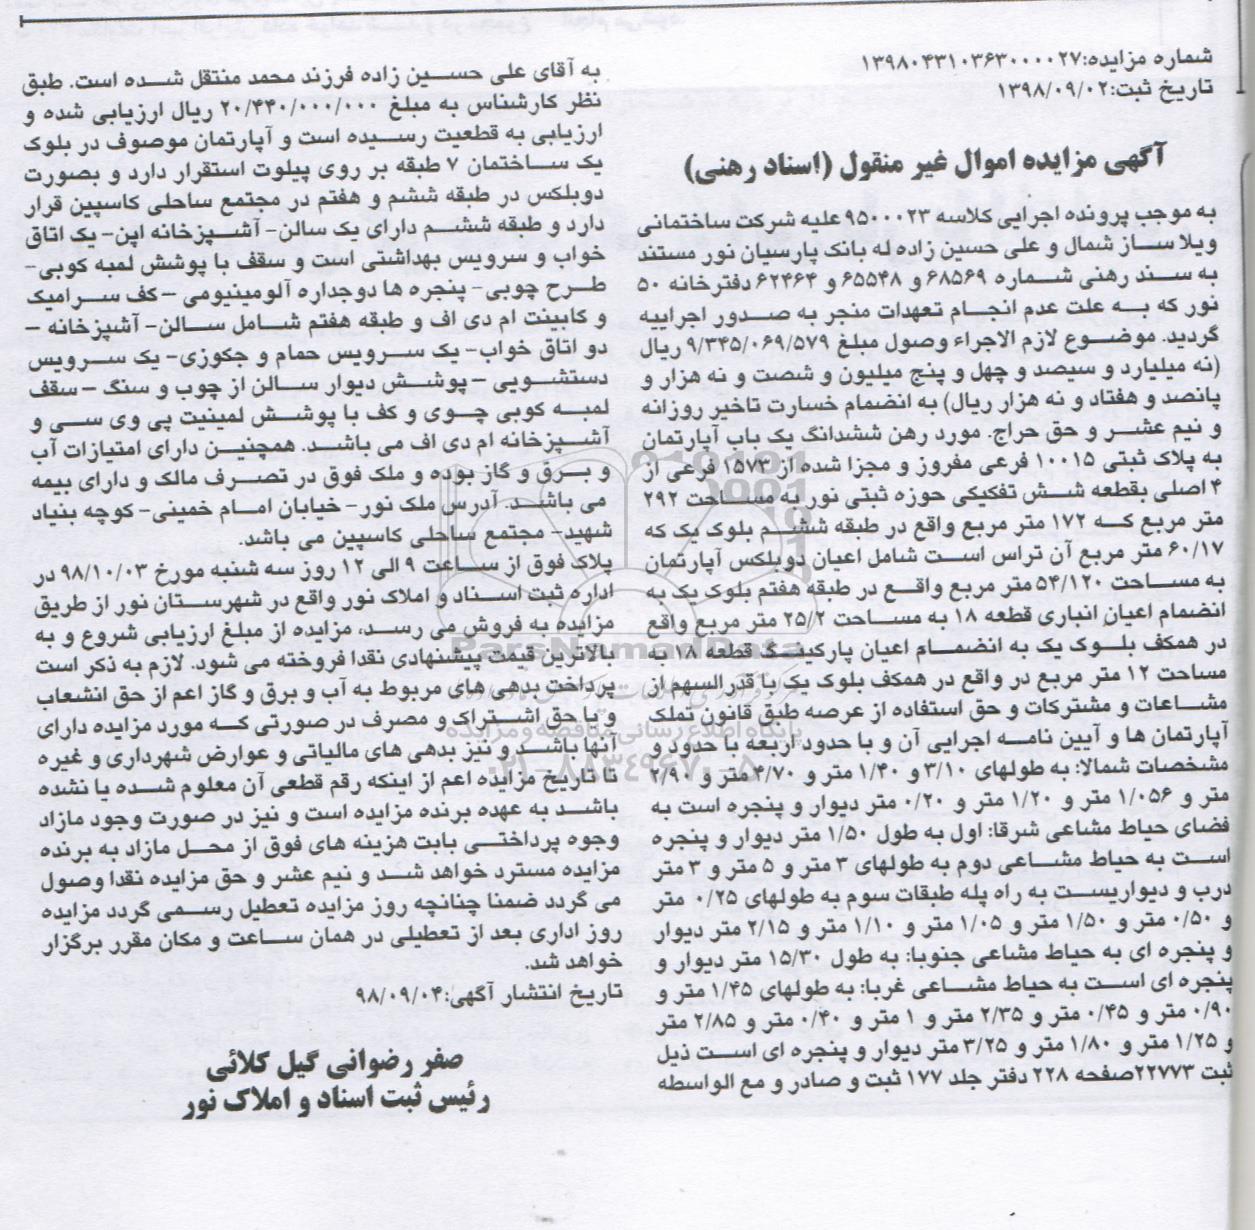 شماره مزایده:۱۳۹۸۰۴۳۱۰۳۶۳۰۰۰۰۲۷
تاریخ ثبت:۱۳۹۸/۰۹/۰۲
آگهی مزایده اموال غیر منقول (اسناد رهنی)
به موجب پرونده اجرایی کلاسه ۹۵۰۰۰۲۳ علیه شرکت ساختمانی
ویلا ساز شمال و علی حسین زاده له بانک پارسیان نور مستند
به سند رهنی شماره ۶۸۵۶۹ و ۶۵۵۴۸ و ۶۲۴۶۴ دفترخانه ۵۰
نور که به علت عدم انجام تعهدات منجر به صدور اجراییه
گردید. موضوع لازم الاجراء وصول مبلغ ۹/۳۴۵/۰۶۹/۵۷۹ ریال
(نه میلیارد و سیصد و چهل و پنج میلیون و شصت و نه هزار و
پانصد و هفتاد و نه هزار ریال) به انضمام خسارت تاخیر روزانه
و نیم عشر و حق حراج. مورد رهن ششدانگ یک باب آپارتمان
به پلاک ثبتی ۱۰۰۱۵ فرعی مفروز و مجزا شده از ۱۵۷۳ فرعی از
۴ اصلی بقطعه شش تفکیکی حوزه ثبتی نور به مساحت ۲۹۲
متر مربع که ۱۷۲ متر مربع واقع در طبقه ششم بلوک یک که
۶۰/۱۷ متر مربع آن تراس است شامل اعیان دوبلکس آپارتمان
به مساحت ۵۴/۱۲۰ متر مربع واقع در طبقه هفتم بلوک یک به
انضمام اعیان انباری قطعه ۱۸ به مساحت ۲۵/۲ متر مربع واقع
در همکف بلوک یک به انضمام اعیان پارکینگ قطعه ۱۸ به
مساحت ۱۲ متر مربع در واقع در همکف بلوک یک با قدرالسهم از
مشاعات و مشترکات و حق استفاده از عرصه طبق قانون تملک
آپارتمان ها و آیین نامه اجرایی آن و با حدود اربعه با حدود و
مشخصات شمالا: به طولهای ۳/۱۰ و ۱/۴۰ متر و ۴/۷۰ متر و ۲/۹۰
متر و ۱/۰۵۶ متر و ۱/۲۰ متر و ۰/۲۰ متر دیوار و پنجره است به
فضای حیاط مشاعی شرقا: اول به طول ۱/۵۰ متر دیوار و پنجره
است به حیاط مشاعی دوم به طولهای ۳ متر و ۵ متر و ۳ متر
درب و دیواریست به راه پله طبقات سوم به طولهای ۰/۲۵ متر
و ۰/۵۰ متر و ۱/۵۰ متر و ۱/۰۵ متر و ۱/۱۰ متر و ۲/۱۵ متر دیوار
و پنجره ای به حیاط مشاعی جنوبا: به طول ۱۵/۳۰ متر دیوار و
پنجره ای است به حیاط مشاعی غربا: به طولهای ۱/۴۵ متر و
۰/۹۰ متر و ۰/۴۵ متر و ۲/۳۵ متر و ۱ متر و ۰/۴۰ متر و ۲/۸۵ متر
و ۱/۲۵ متر و ۱/۸۰ متر و ۳/۲۵ متر دیوار و پنجره ای است ذیل
ثبت ۲۲۷۷۳صفحه ۲۲۸ دفتر جلد ۱۷۷ ثبت و صادر و مع الواسطه
به آقای علی حسین زاده فرزند محمد منتقل شده است. طبق
نظر کارشناس به مبلغ ۲۰/۴۴۰/۰۰۰/۰۰۰ ریال ارزیابی شده و
ارزیابی به قطعیت رسیده است و آپارتمان موصوف در بلوک
یک ساختمان ۷ طبقه بر روی پیلوت استقرار دارد و بصورت
دوبلکس در طبقه ششم و هفتم در مجتمع ساحلی کاسپین قرار
دارد و طبقه ششم دارای یک سالن- آشپزخانه اپن- یک اتاق
خواب و سرویس بهداشتی است و سقف با پوشش لمبه کوبی-
طرح چوبی- پنجره ها دوجداره آلومینیومی –کف سرامیک
و کابینت ام دی اف و طبقه هفتم شامل سالن- آشپزخانه –
دو اتاق خواب- یک سرویس حمام و جکوزی- یک سرویس
دستشویی –پوشش دیوار سالن از چوب و سنگ – سقف
لمبه کوبی چوی و کف با پوشش لمینیت پی وی سی و
آشپزخانه ام دی اف می باشد. همچنین دارای امتیازات آب
و برق و گاز بوده و ملک فوق در تصرف مالک و دارای بیمه
می باشد. آدرس ملک نور- خیابان امام خمینی- کوچه بنیاد
شهید- مجتمع ساحلی کاسپین می باشد.
پلاک فوق از ساعت ۹ الی ۱۲ روز سه شنبه مورخ ۹۸/۱۰/۰۳ در
اداره ثبت اسناد و املاک نور واقع در شهرستان نور از طریق
مزایده به فروش می رسد، مزایده از مبلغ ارزیابی شروع و به
بالاترین قیمت پیشنهادی نقدا فروخته می شود. لازم به ذکر است
پرداخت بدهی های مربوط به آب و برق و گاز اعم از حق انشعاب
و یا حق اشتراک و مصرف در صورتی که مورد مزایده دارای
آنها باشد و نیز بدهی های مالیاتی و عوارض شهرداری و غیره
تا تاریخ مزایده اعم از اینکه رقم قطعی آن معلوم شده یا نشده
باشد به عهده برنده مزایده است و نیز در صورت وجود مازاد
وجوه پرداختی بابت هزینه های فوق از محل مازاد به برنده
مزایده مسترد خواهد شد و نیم عشر و حق مزایده نقدا وصول
می گردد ضمنا چنانچه روز مزایده تعطیل رسمی گردد مزایده
روز اداری بعد از تعطیلی در همان ساعت و مکان مقرر برگزار
خواهد شد.
تاریخ انتشار آگهی:۹۸/۰۹/۰۴
صفر رضوانی گیل کلائی
رئیس ثبت اسناد و املاک نور
ParsNamadData
پایگاه اطلاع رسانی مناقصه و مزایده
۰۲۱-۸۸۳۴۹۶۷۰-۵